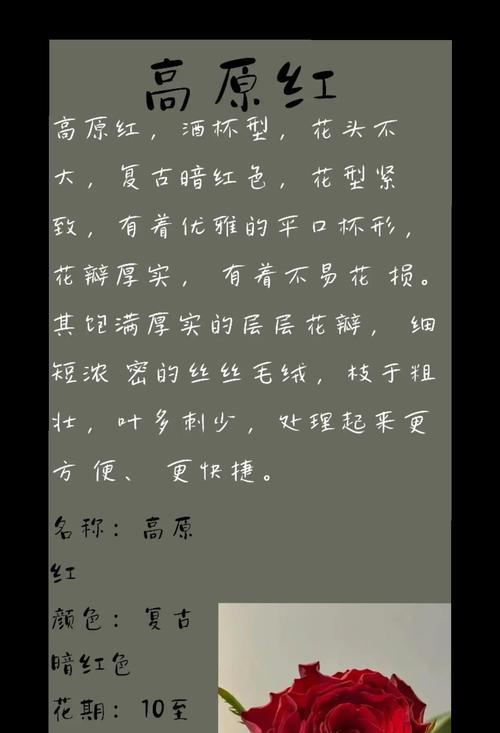 高原红
高原红，酒杯型，花头不
大，复古暗红色，花型紧
致，有着优雅的平口杯形，
花瓣厚实， 有着不易花 损。
其饱满厚实的层层花瓣， 细
短浓 密的丝丝毛绒，枝于粗
壮，叶多刺少，处理起来更
方 便、 更快捷。
名称：高原
红
颜色：复古
暗红色
花期：10至